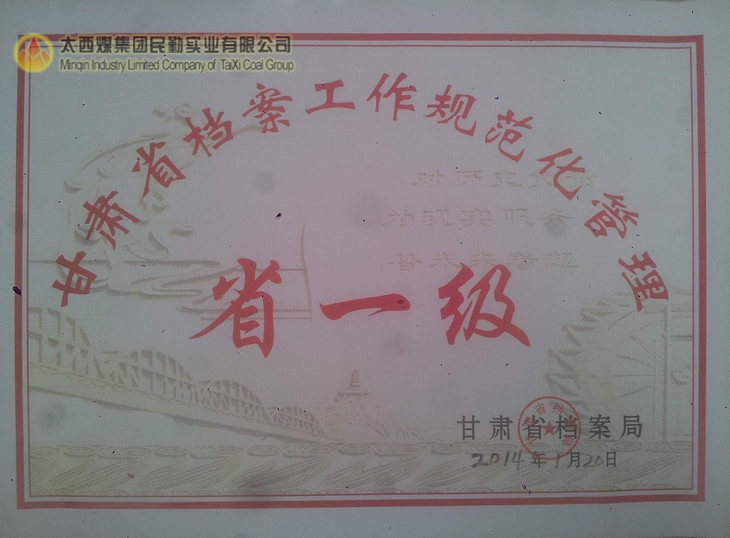 太西煤集团民勤实业有限公司
Minqin Industry Limited Company of TaiXi Coal Group
甘肃省档案工作规范化管理
省一级
甘肃省档案局
2014年1月20日